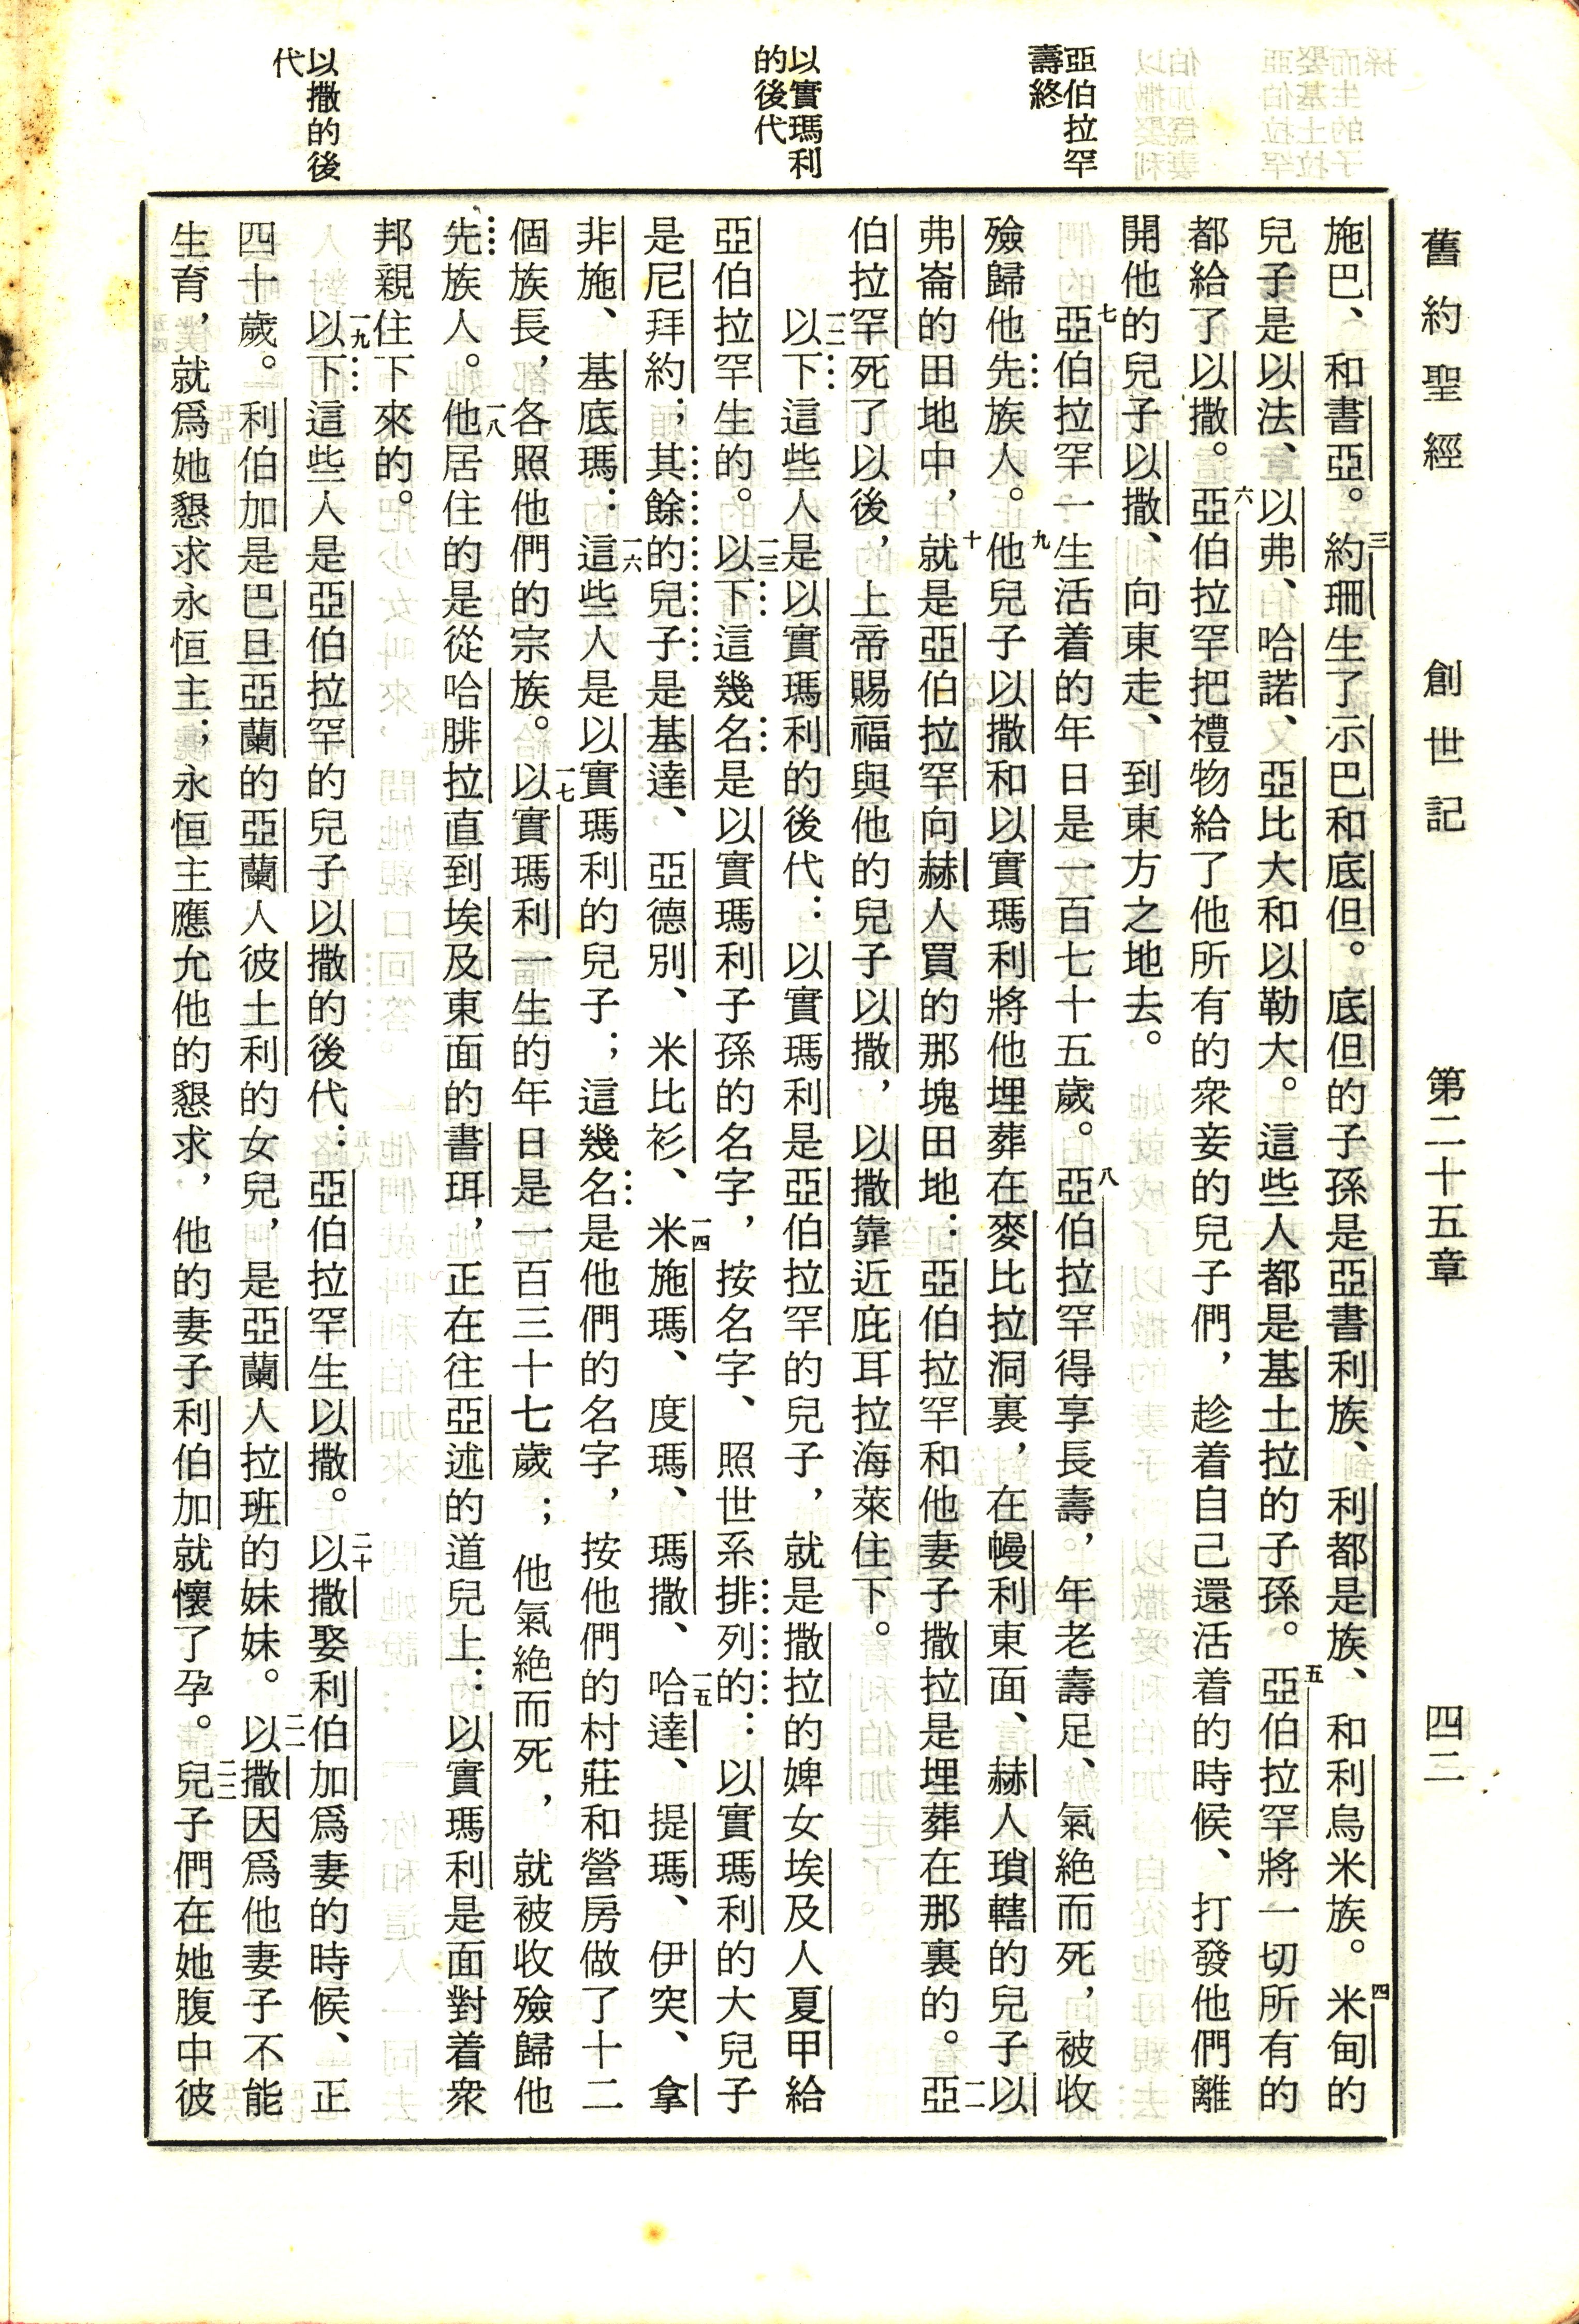 舊約聖經 創世記 第二十五章 四二
亞伯拉罕
壽終
以實瑪利
的後代
以撒的後
代
施巴、和書亞。三約珊生了示巴和底但。底但的子孫是亞書利族、利都是族、和利烏米族。四米甸的
兒子是以法、以弗、哈諾、亞比大和以勒大。這些人都是基土拉的子孫。五亞伯拉罕將一切所有的
都給了以撒。六亞伯拉罕把禮物給了他所有的衆妾的兒子們，趁着自己還活着的時候、打發他們離
開他的兒子以撒、向東走、到東方之地去。
七亞伯拉罕一生活着的年日是一百七十五歲。八亞伯拉罕得享長壽，年老壽足、氣絕而死，被收
殮歸他先族人。九他兒子以撒和以實瑪利將他埋葬在麥比拉洞裏，在幔利東面、赫人瑣轄的兒子以
弗崙的田地中，十就是亞伯拉罕向赫人買的那塊田地：亞伯拉罕和他妻子撒拉是埋葬在那裏的。一一亞
伯拉罕死了以後，上帝賜福與他的兒子以撒，以撒靠近庇耳拉海萊住下。
一二以下這些人是以實瑪利的後代：以實瑪利是亞伯拉罕的兒子，就是撒拉的婢女埃及人夏甲給
亞伯拉罕生的。一三以下這幾名是以實瑪利子孫的名字，按名字、照世系排列的：以實瑪利的大兒子
是尼拜約；其餘的兒子是基達、亞德別、米比衫、一四米施瑪、度瑪、瑪撒、一五哈達、提瑪、伊突、拿
非施、基底瑪：一六這些人是以實瑪利的兒子；這幾名是他們的名字，按他們的村莊和營房做了十二
個族長，各照他們的宗族。一七以實瑪利一生的年日是一百三十七歲；他氣絕而死，就被收殮歸他
先族人。一八他居住的是從哈腓拉直到埃及東面的書珥，正在往亞述的道兒上：以實瑪利是面對着衆
邦親住下來的。
一九以下這些人是亞伯拉罕的兒子以撒的後代：亞伯拉罕生以撒。二十以撒娶利伯加爲妻的時候、正
四十歲。利伯加是巴旦亞蘭的亞蘭人彼土利的女兒，是亞蘭人拉班的妹妹。二一以撒因爲他妻子不能
生育，就爲她懇求永恒主；永恒主應允他的懇求，他的妻子利伯加就懷了孕。二二兒子們在她腹中彼